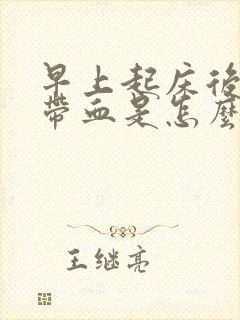 早上起床後
帶血是怎麼
王继亮